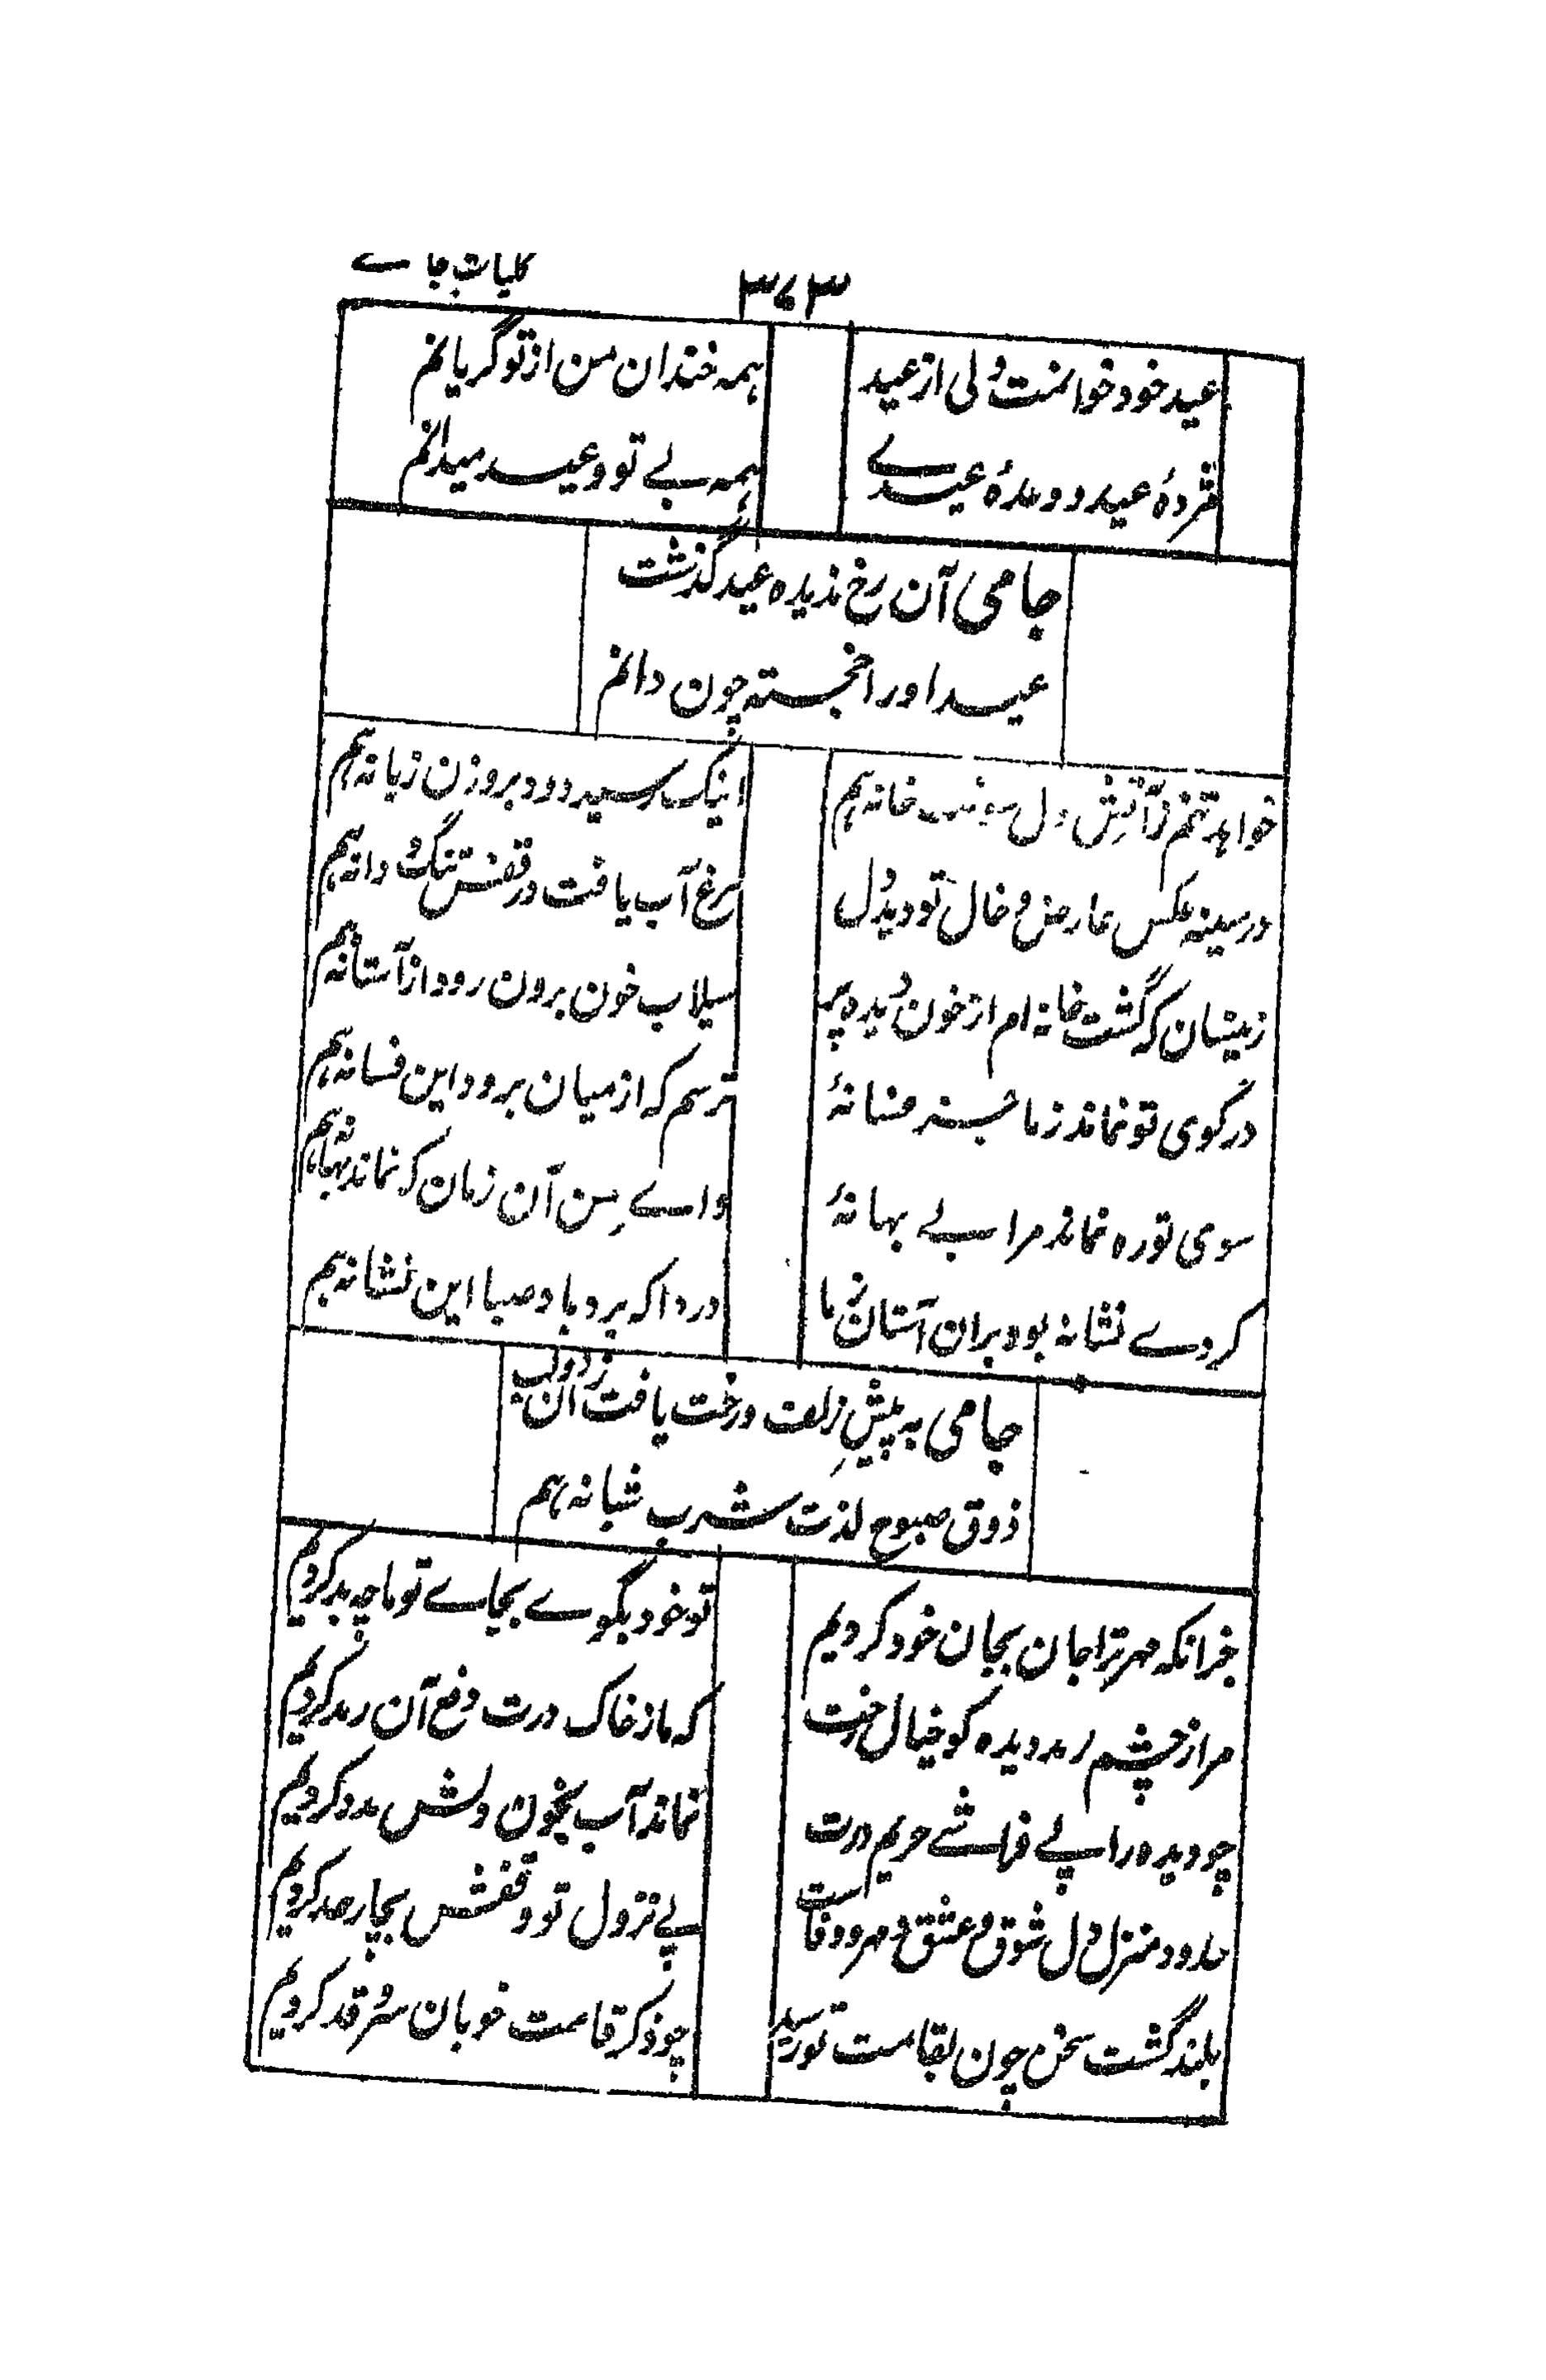 کلیات جامے
۳۷۳
عید خود خوانمت ولی از عید
همه خندان من از تو گریانم
مژدهٔ عید و وعدهٔ عیدے
همه بے تو وعید میدانم
جامی آن رخ ندیده عید گذشت
عید او را خجسته چون دانم
خواهد تنم ز آتش دل سوخت خانه هم
اینک رسید دود بروزن زبانه هم
در سینه عکس عارض و خال تو دید دل
مرغ آب یافت در قفس تنگ و دانه هم
زینسان که گشت خانه ام از خون دیده پر
سیلاب خون برون رود از آستانه هم
در کوی تو نماند ز ما جز فسانهٔ
ترسم که از میان برود این فسانه هم
سوی تو ره نماند مرا بے بهانهٔ
واے من آن زمان که نماند بهانه هم
گردے نشانه بود بران آستان ز ما
دردا که برد باد صبا این نشانه هم
جامی به پیش زلف و رخت یافت زان دو لب
ذوق صبوح لذت شرب شبانه هم
جز آنکه مهر ترا جان بجان خود کردیم
تو خود بگوے بجاے تو ما چه بد کردیم
مرا ز چشم رمد دیده کو خیال رخت
که ما ز خاک درت دفع آن رمد کردیم
چو دیده را پے فراشے حریم درت
نماند آب بخون دلش مدد کردیم
حدود منزل دل شوق و عشق و مهر و وفاست
پے نزول تو وقفش بچار حد کردیم
بلند گشت سخن چون بقامت تو رسید
چو ذکر قامت خوبان سرو قد کردیم